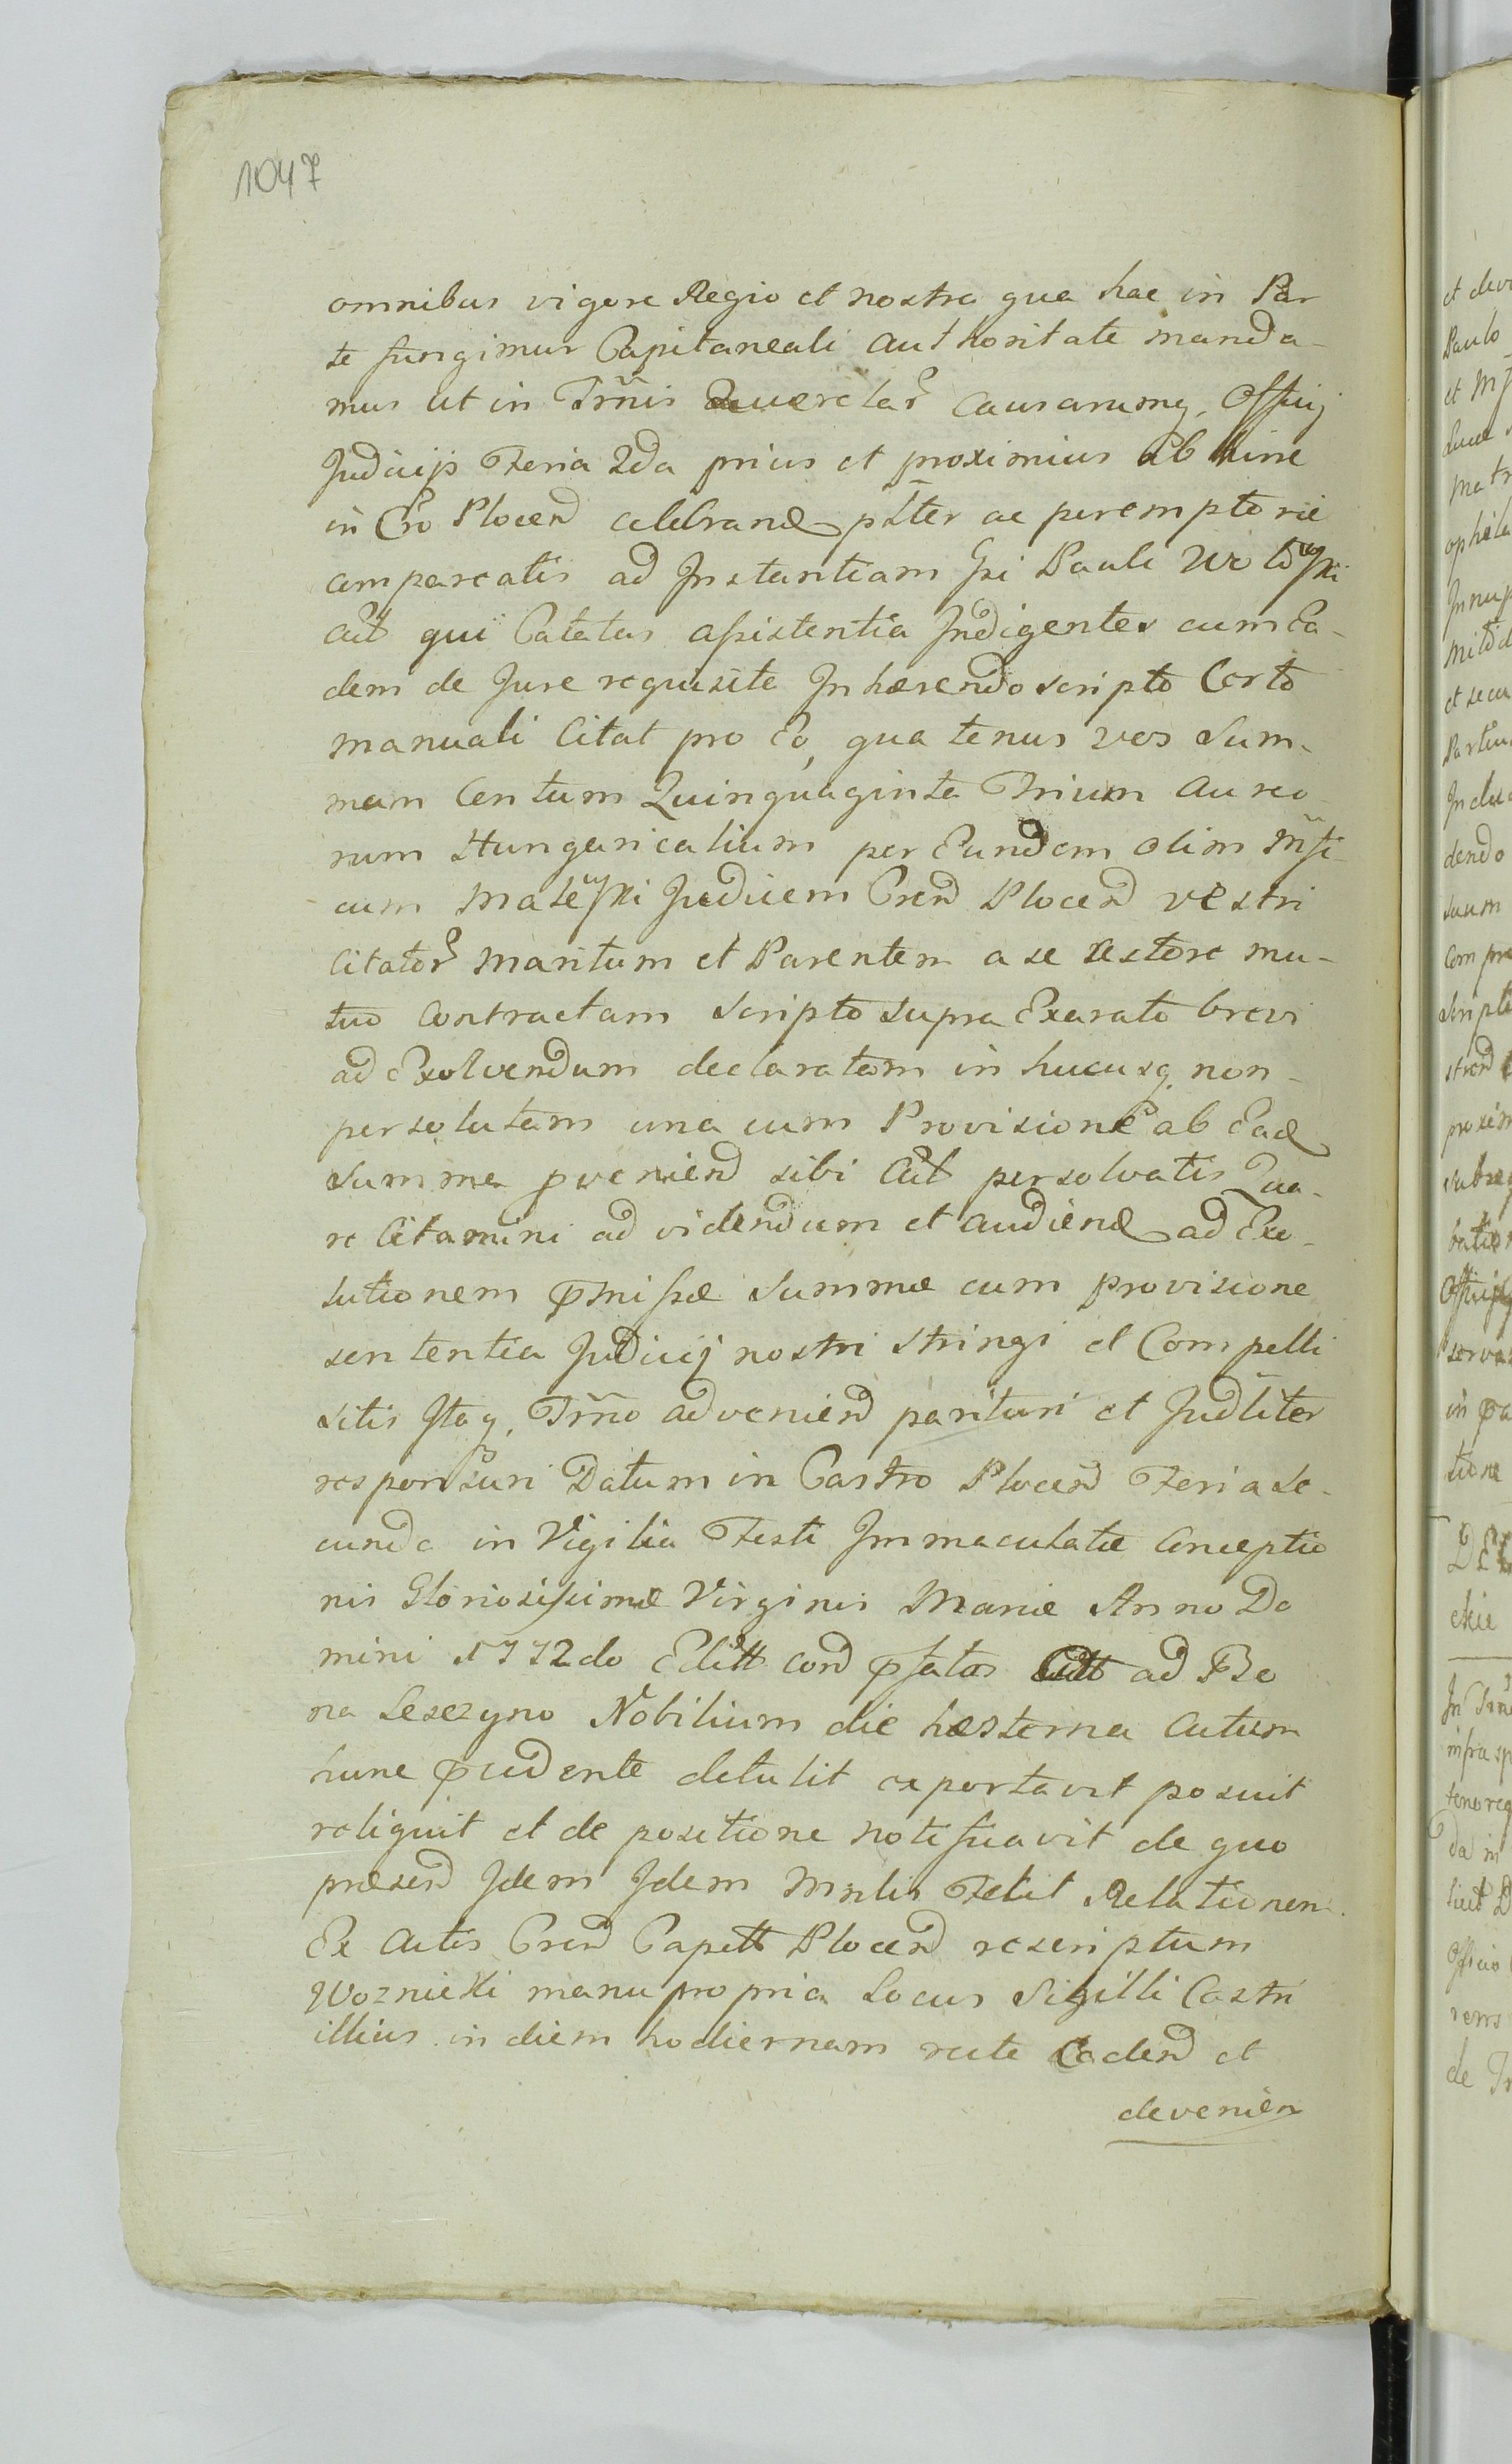 1047
omnibus vigore Regio et nostra qua hac in Par
te fungimur Capitaneali authoritate manda-
mus ut in Trnis Querelar causarumq. Officij
Judicijs Feria 2da prius et proximius ab hinc
in Cro Plocen celebrand pltter ac peremptorie
compareatis ad Instantiam Gsi Pauli
Act qui Citatus assistentia Indigentes cum Ea-
dem de Jure requisita Inhærendo scripto Certo
manuali Citat pro Eo, qua tenus vos Sum-
mam Centum Quinquaginta Trium aureo
rum Hungaricalium per Eundem olim Mfi-
cum Judicem Cren Plocen vestri
Citator Maritum et Parentem a se Actore mu-
tuo contractam Scripto supra Exarato brevi
ad Exolvendum declaratam in hucusq. non-
persolutam una cum Provisione ab Ead
Summa pvenien sibi Act persolvatis Qua-
re Citamini ad videndum et audiend ad Exo-
lutionem pmissæ Summæ cum provisione
sententia Judicij nostri stringi et Compelli
sitis Itaq. Trno advenien parituri et Judliter
responsuri Datum in Castro Plocen Feria Se-
cunda in Vigilia Festi Immaculatæ Conceptio
nis Gloriosissimæ Virginis Mariæ Anno Do
mini 1772do Editt con pfatos Citt ad Bo
na Leszczyno Nobilium die hesterna actum
hunc pcedente detulit exportavit posuit
reliquit et de positione notificavit de quo
præsen Idem Idem Mnlis Fecit Relationem.
Ex Actis Cren Capett Plocen rescriptum
Woznicki manu propria Locus Sigilli Castri
illius in diem hodiernam recte Caden et
devenien